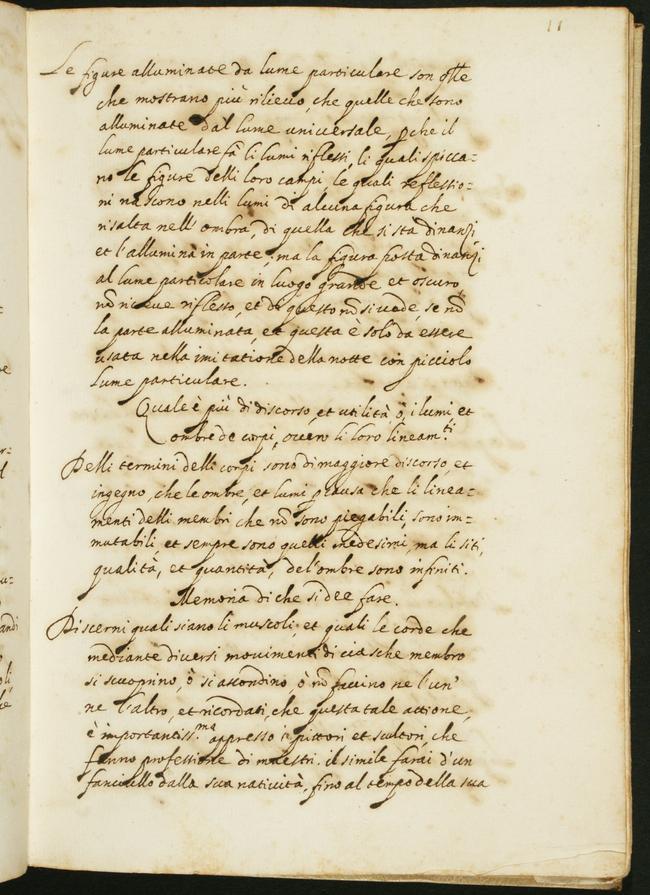 11
Le figure alluminate da lume particulare son q̃lle
che mostrano più rilieuo, che quelle che sono
alluminate dal lume uniuersale, pche il
lume particulare fà li lumi riflessi, li quali spicca-
no le figure delli loro campi, le quali reflessio-
ni nascono nelli lumi di alcuna figura che
risalta nell' ombra, di quella che si sta dinanzi
et l'allumina in parte; ma la figura posta dinanzi
al lume particolare in luogo grande et oscuro
nõ riceue riflesso, et di questo nõ si uede, se nõ
la parte alluminata, et questa è solo da essere
usata nella imitatione della notte con picciolo
lume particulare.
Quale è più di discorso, et utilità, ò, i lumi et
ombre de corpi, ouero li loro lineam.ti
Delli termini delli corpi sono di maggiore discorso, et
ingegno, che le ombre, et lumi p causa che li linea-
menti delli membri che nõ sono piegabili, sono im-
mutabili, et sempre sono quelli medesimi, ma li siti,
qualità, et quantità, del'ombre sono infiniti.
Memoria di che si dee fare.
Discerni quali siano li muscoli, et quali le corde che
mediante diuersi mouimenti di ciasche membro
si scuoprino, ò si ascondino, ò nõ faccino ne l'un'
ne l'altro, et ricordati, che questa tale attione,
è importantiss.ma appresso i pittori et scultori, che
fanno professione di maestri. il simile farai d'un
fanciullo dalla sua natiuità, fino al tempo della sua